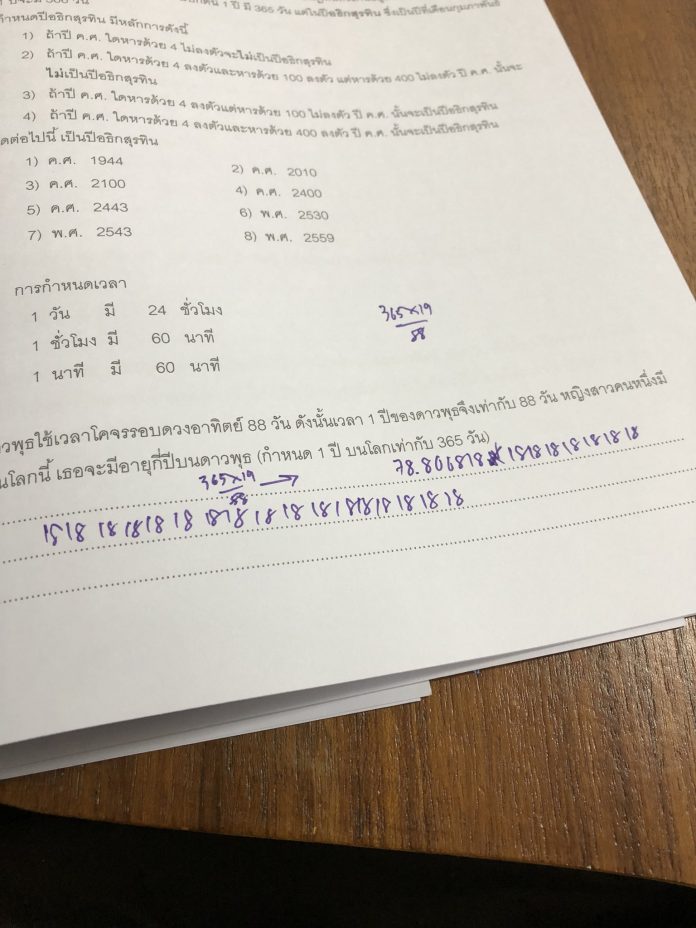 1 ปี มี 365 วัน แต่ในปีอธิกสุรทิน ซึ่งเป็นปีที่เดือนกุมภาพันธ์
กำหนดปีอธิกสุรทิน มีหลักการดังนี้
1) ถ้าปี ค.ศ. ใดหารด้วย 4 ไม่ลงตัวจะไม่เป็นปีอธิกสุรทิน
2) ถ้าปี ค.ศ. ใดหารด้วย 4 ลงตัวและหารด้วย 100 ลงตัว แต่หารด้วย 400 ไม่ลงตัว ปี ค.ศ. นั้นจะ
ไม่เป็นปีอธิกสุรทิน
3) ถ้าปี ค.ศ. ใดหารด้วย 4 ลงตัวแต่หารด้วย 100 ไม่ลงตัว ปี ค.ศ. นั้นจะเป็นปีอธิกสุรทิน
4) ถ้าปี ค.ศ. ใดหารด้วย 4 ลงตัวและหารด้วย 400 ลงตัว ปี ค.ศ. นั้นจะเป็นปีอธิกสุรทิน
ดต่อไปนี้ เป็นปีอธิกสุรทิน
1) ค.ศ. 1944 2) ค.ศ. 2010
3) ค.ศ. 2100 4) ค.ศ. 2400
5) ค.ศ. 2443 6) พ.ศ. 2530
7) พ.ศ. 2543 8) พ.ศ. 2559
การกำหนดเวลา
1 วัน มี 24 ชั่วโมง
365×19
88
1 ชั่วโมง มี 60 นาที
1 นาที มี 60 นาที
าวพุธใช้เวลาโคจรรอบดวงอาทิตย์ 88 วัน ดังนั้นเวลา 1 ปีของดาวพุธจึงเท่ากับ 88 วัน หญิงสาวคนหนึ่งมี
นโลกนี้ เธอจะมีอายุกี่ปีบนดาวพุธ (กำหนด 1 ปี บนโลกเท่ากับ 365 วัน)
365×19 → 78.806818 18 18 18 18 18 18 18
88
18 18 18 18 18 18 18 18 18 18 18 18 18 18 18 18 18